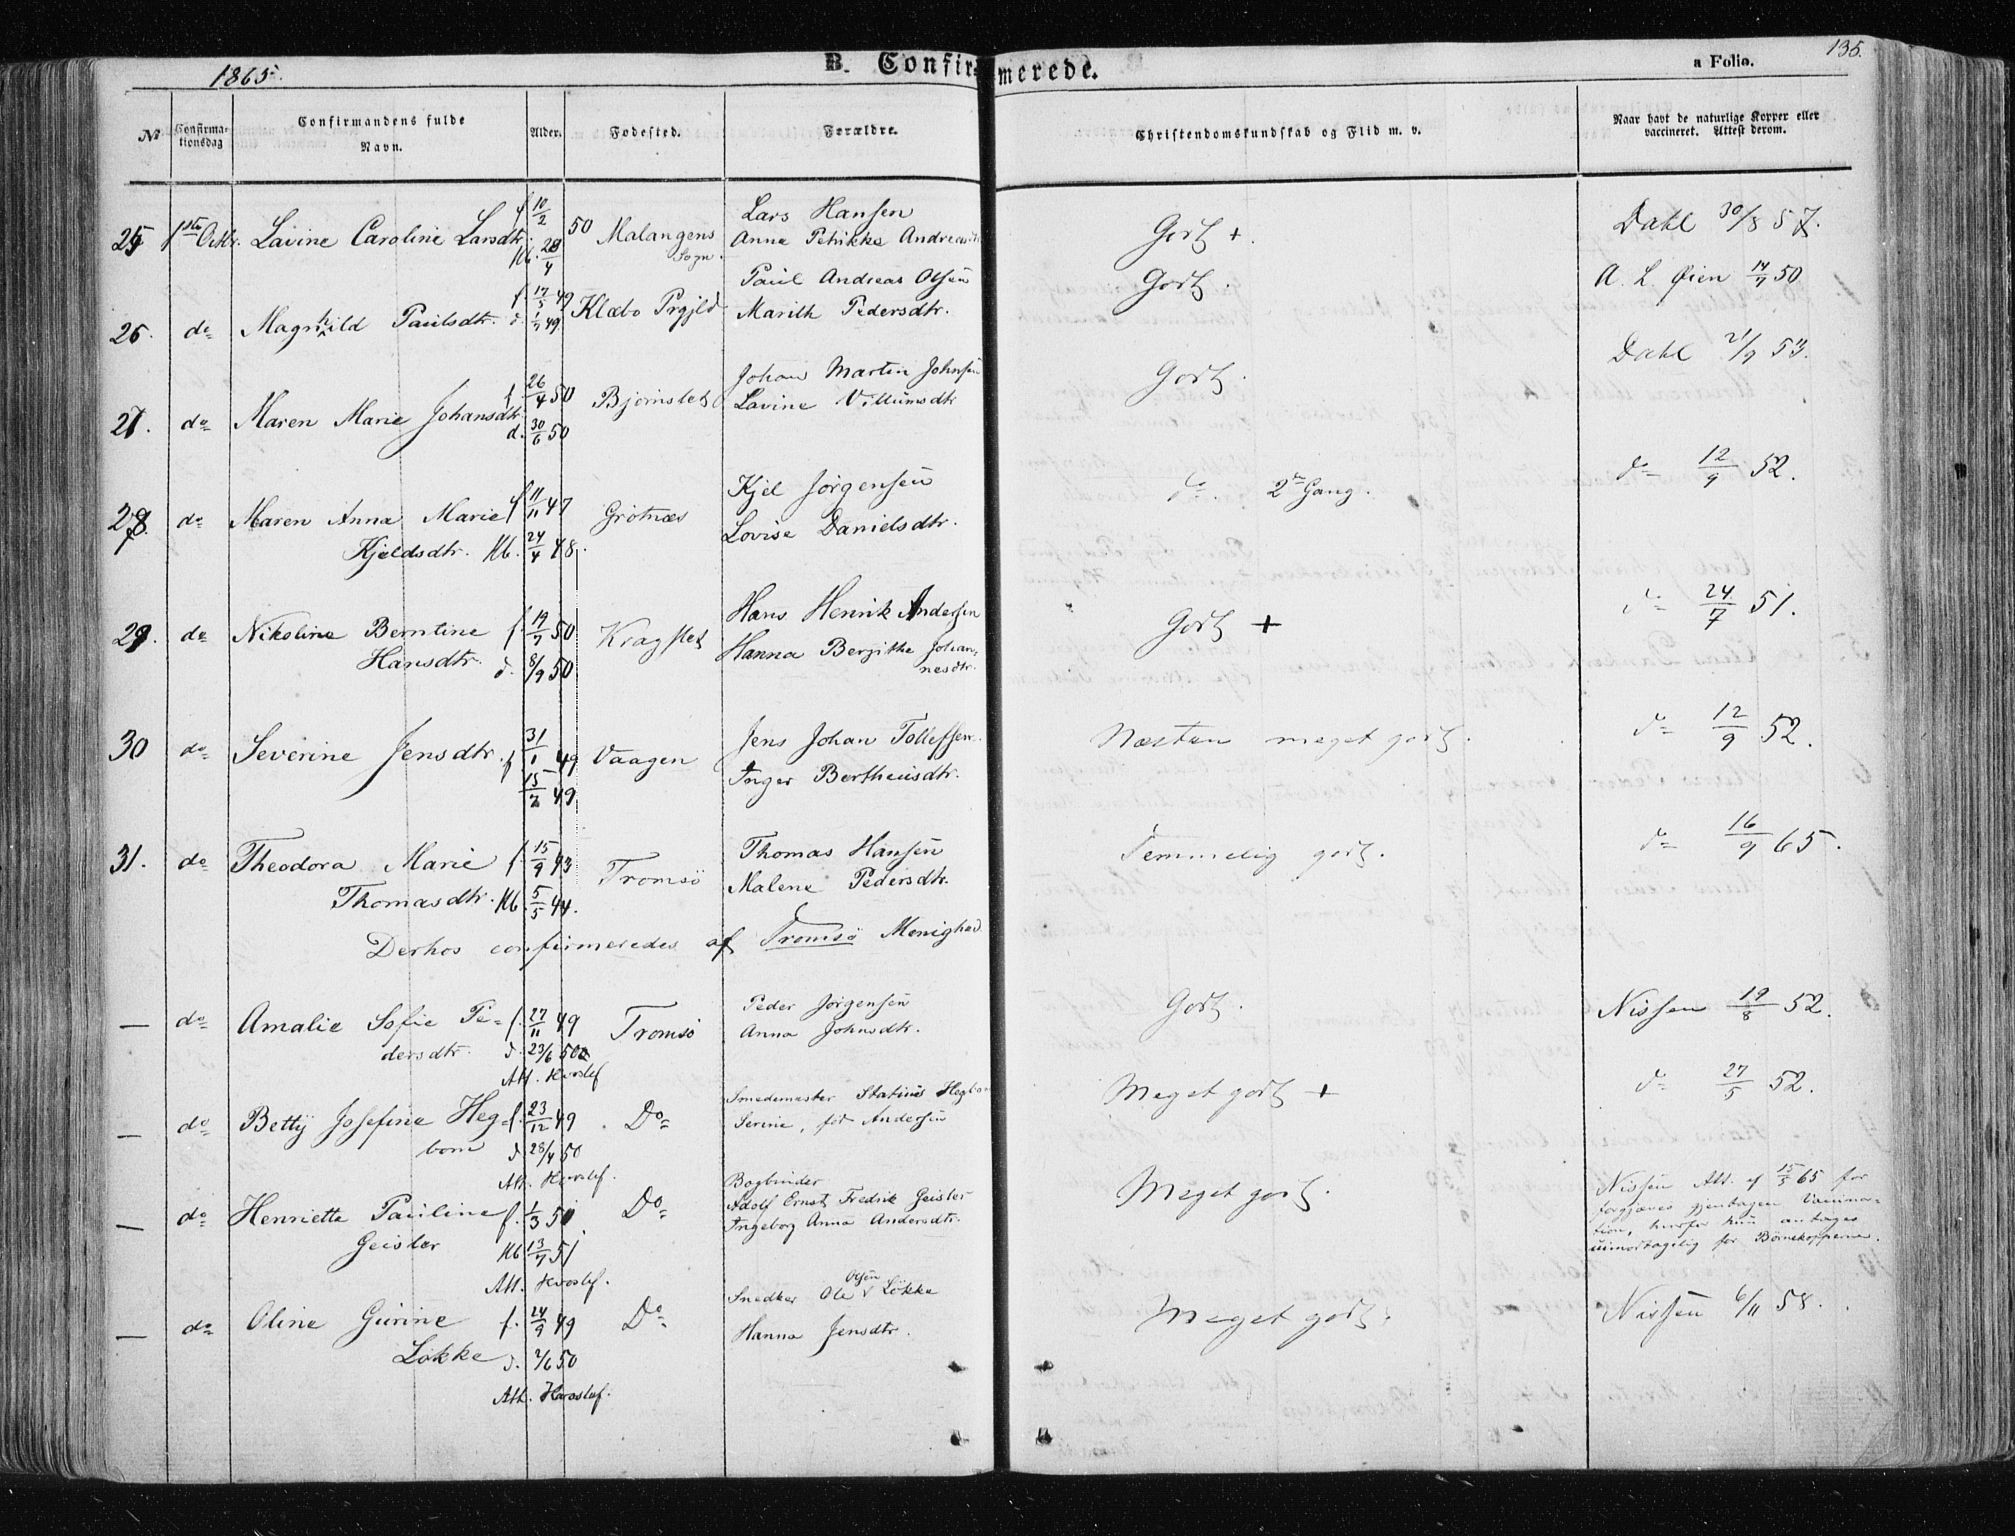 1865.
B. Confirmerede.
a Folio.
135.
No
Confirmationsdag
Confirmandens fulde
Navn.
Alder.
Fødested.
Forældre.
Christendomskundskab og Flid m. v.
Naar havt de naturlige Kopper eller
vaccineret. Attest derom.
25 1ste Octbr. Lavine Caroline Larsdtr. f. 10/2 50 Malangens Lars Hansen Godt + Dahl 30/8 57.
Kb. 28/4 Sogn. Anna Petrikke
26. do Magnhild Paulsdtr. f. 17/5 49 Klæbo Prgjld Paul Andreas Olsen Godt. A. L. Øien 14/7 50
d. 1/7 49 Marith Pedersdtr.
27. do Maren Marie Johansdtr. f. 26/4 50 Bjørnslet Johan Martin Johnsen Godt. Dahl 21/9 53.
d. 30/6 50 Lavine Villumsdtr
28. do Maren Anna Marie f. 11/11 47 Grøtnæs Kjel Jørgensen do. 2den Gang. do 12/9 52.
Kjeldsdtr. Kb. 24/4 48. Lovise Danielsdtr.
29. do Nikoline Berntine f. 19/7 50 Kragslet Hans Henrik Andersen Godt + do 24/7 51.
Hansdtr. d. 8/9 50 Hanna Bergithe Johan-
nesdtr.
30 do Severine Jensdtr. f. 31/1 49 Vaagen Jens Johan Tollefsen. Næsten meget godt. do 12/9 52.
15/2 49 Inger Bertheusdtr.
31. do Theodora Marie f. 15/9 43 Tromsø Thomas Hansen Temmelig godt. do 16/9 65.
Thomasdtr. Kb. 5/5 44. Malene Pedersdtr.
Derhos confirmeredes af Tromsø Menighed
— do Amalie Sofie Pe- f. 27/11 49 Tromsø Peder Jørgensen Godt. Nissen 19/8 52.
dersdtr. d. 23/6 50 Anna Johnsdtr.
Att. Kvoslef
— do Betty Josefine Heg- f. 23/12 49 Do Smedemester Statius Meget godt + do 27/5 52.
bom d. 28/4 50 Serine, fød Andersen
Att. Kvoslef.
— do Henriette Pauline f. 1/3 51 Do Bogbinder Meget godt. Nissen Att. af 15/5 65 for
Geisler Kb 13/7 51 Adolf Ernst Fredrik Geisler forgjæves gjentagen Vaccina-
Att. Kvoslef. Ingeborg Anna Andersdtr. tion, hvorfor hun antages
uimodtagelig for Børnekopperne.
— do Oline Gurine f. 24/9 49 Do Snedker Ole Olsen Løkke Meget godt. Nissen 6/11 58.
Løkke d. 2/6 50 Hanna Jensdtr.
Att. Kvoslef.